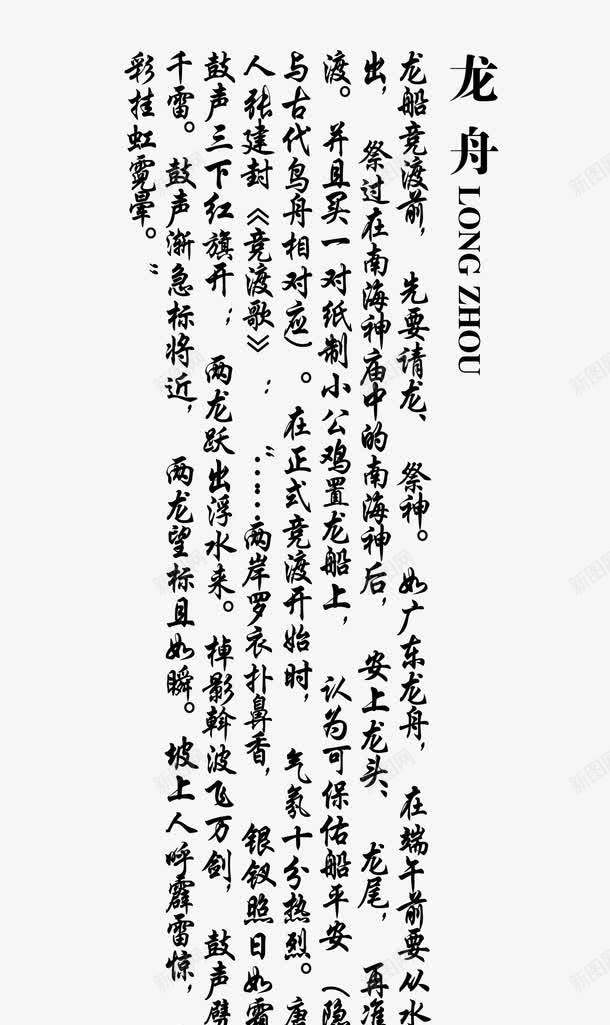 龙舟 LONG ZHOU
龙船竞渡前， 先要请龙、 祭神。 如广东龙舟， 在端午前要从水
出， 祭过在南海神庙中的南海神后， 安上龙头、 龙尾， 再准
渡。 并且买一对纸制小公鸡置龙船上， 认为可保佑船平安 （隐
与古代鸟舟相对应）。 在正式竞渡开始时， 气氛十分热烈。 唐
人张建封《竞渡歌》： “……两岸罗衣扑鼻香， 银钗照日如霜
鼓声三下红旗开； 两龙跃出浮水来。 棹影斡波飞万剑， 鼓声劈
千雷。 鼓声渐急标将近， 两龙望标且如瞬。 坡上人呼霹雷惊，
彩挂虹霓晕。”
新图网